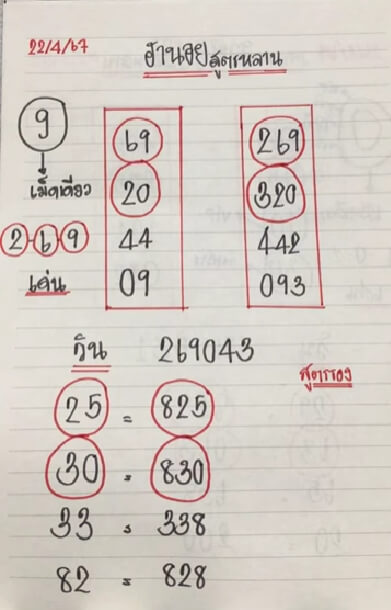 22/4/67
ฮานอยสูตรหลาน
9
เม็ดเดียว
2-6-9
เด่น
69 269
20 320
44 442
09 093
วิน 269043
สูตรรอง
25 = 825
30 = 830
33 = 338
82 = 828